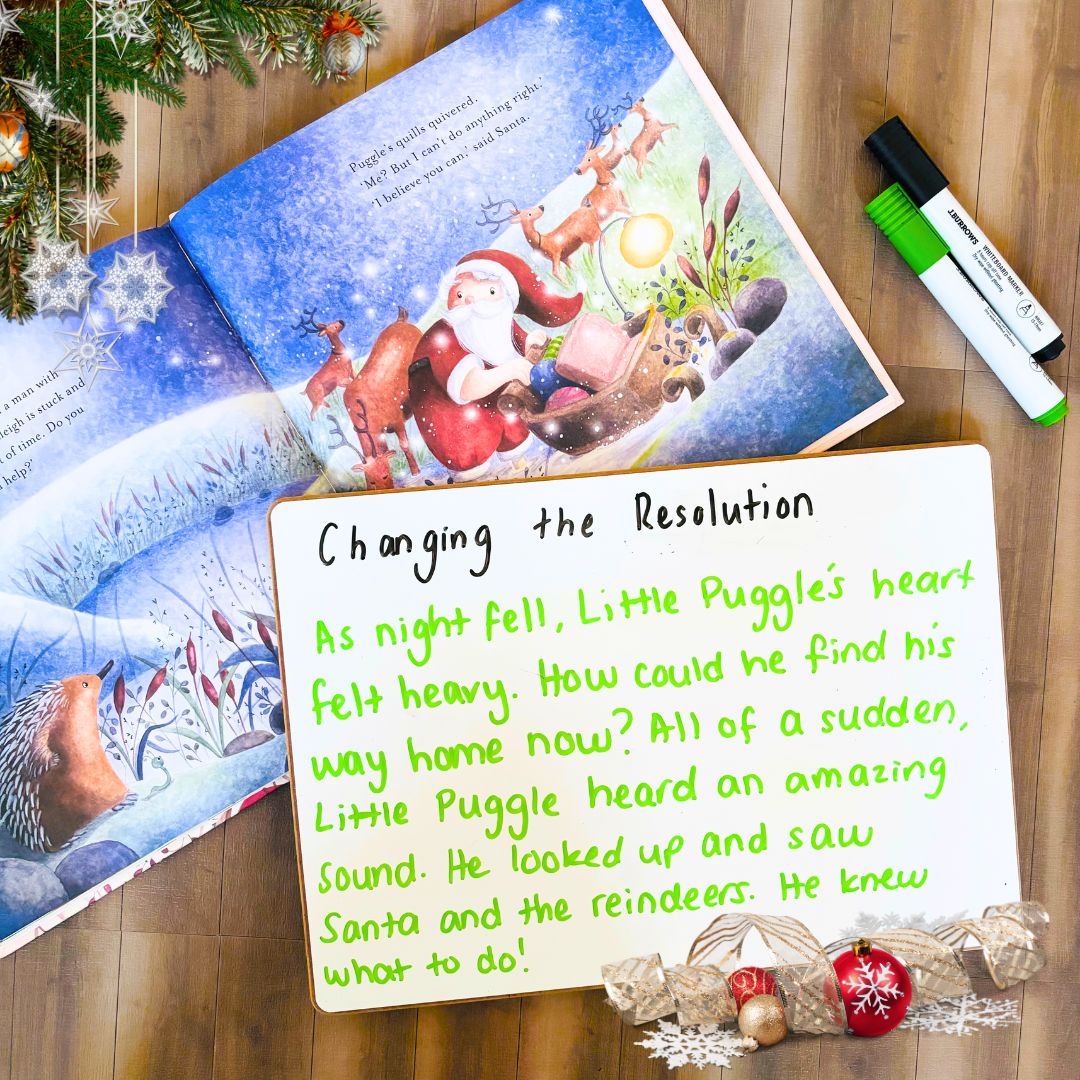 Puggle's quills quivered.
'Me? But I can't do anything right.'
'I believe you can.' said Santa.
a man with
leigh is stuck and
t of time. Do you
help?'
J.BURROWS
WHITEBOARD MARKER
Changing the Resolution
As night fell, Little Puggle's heart
felt heavy. How could he find his
way home now? All of a sudden,
Little Puggle heard an amazing
sound. He looked up and saw
Santa and the reindeers. He knew
what to do!